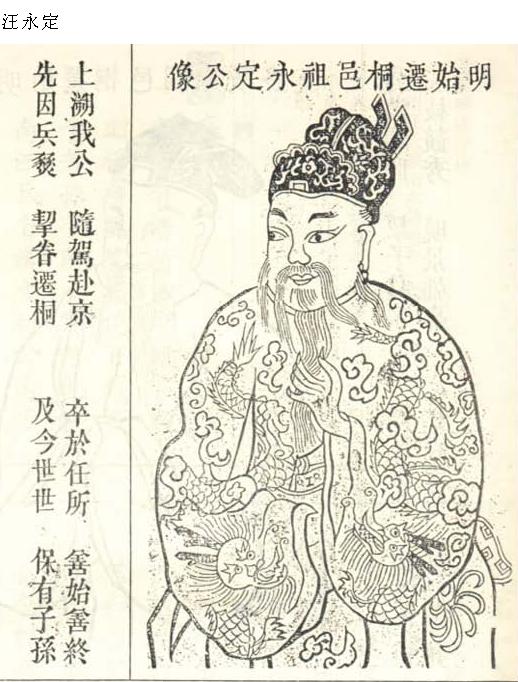 汪永定
明始遷桐邑祖永定公像
上溯我公 隨駕赴京 卒於任所 善始善終
先因兵燹 挈眷遷桐 及今世世 保有子孫